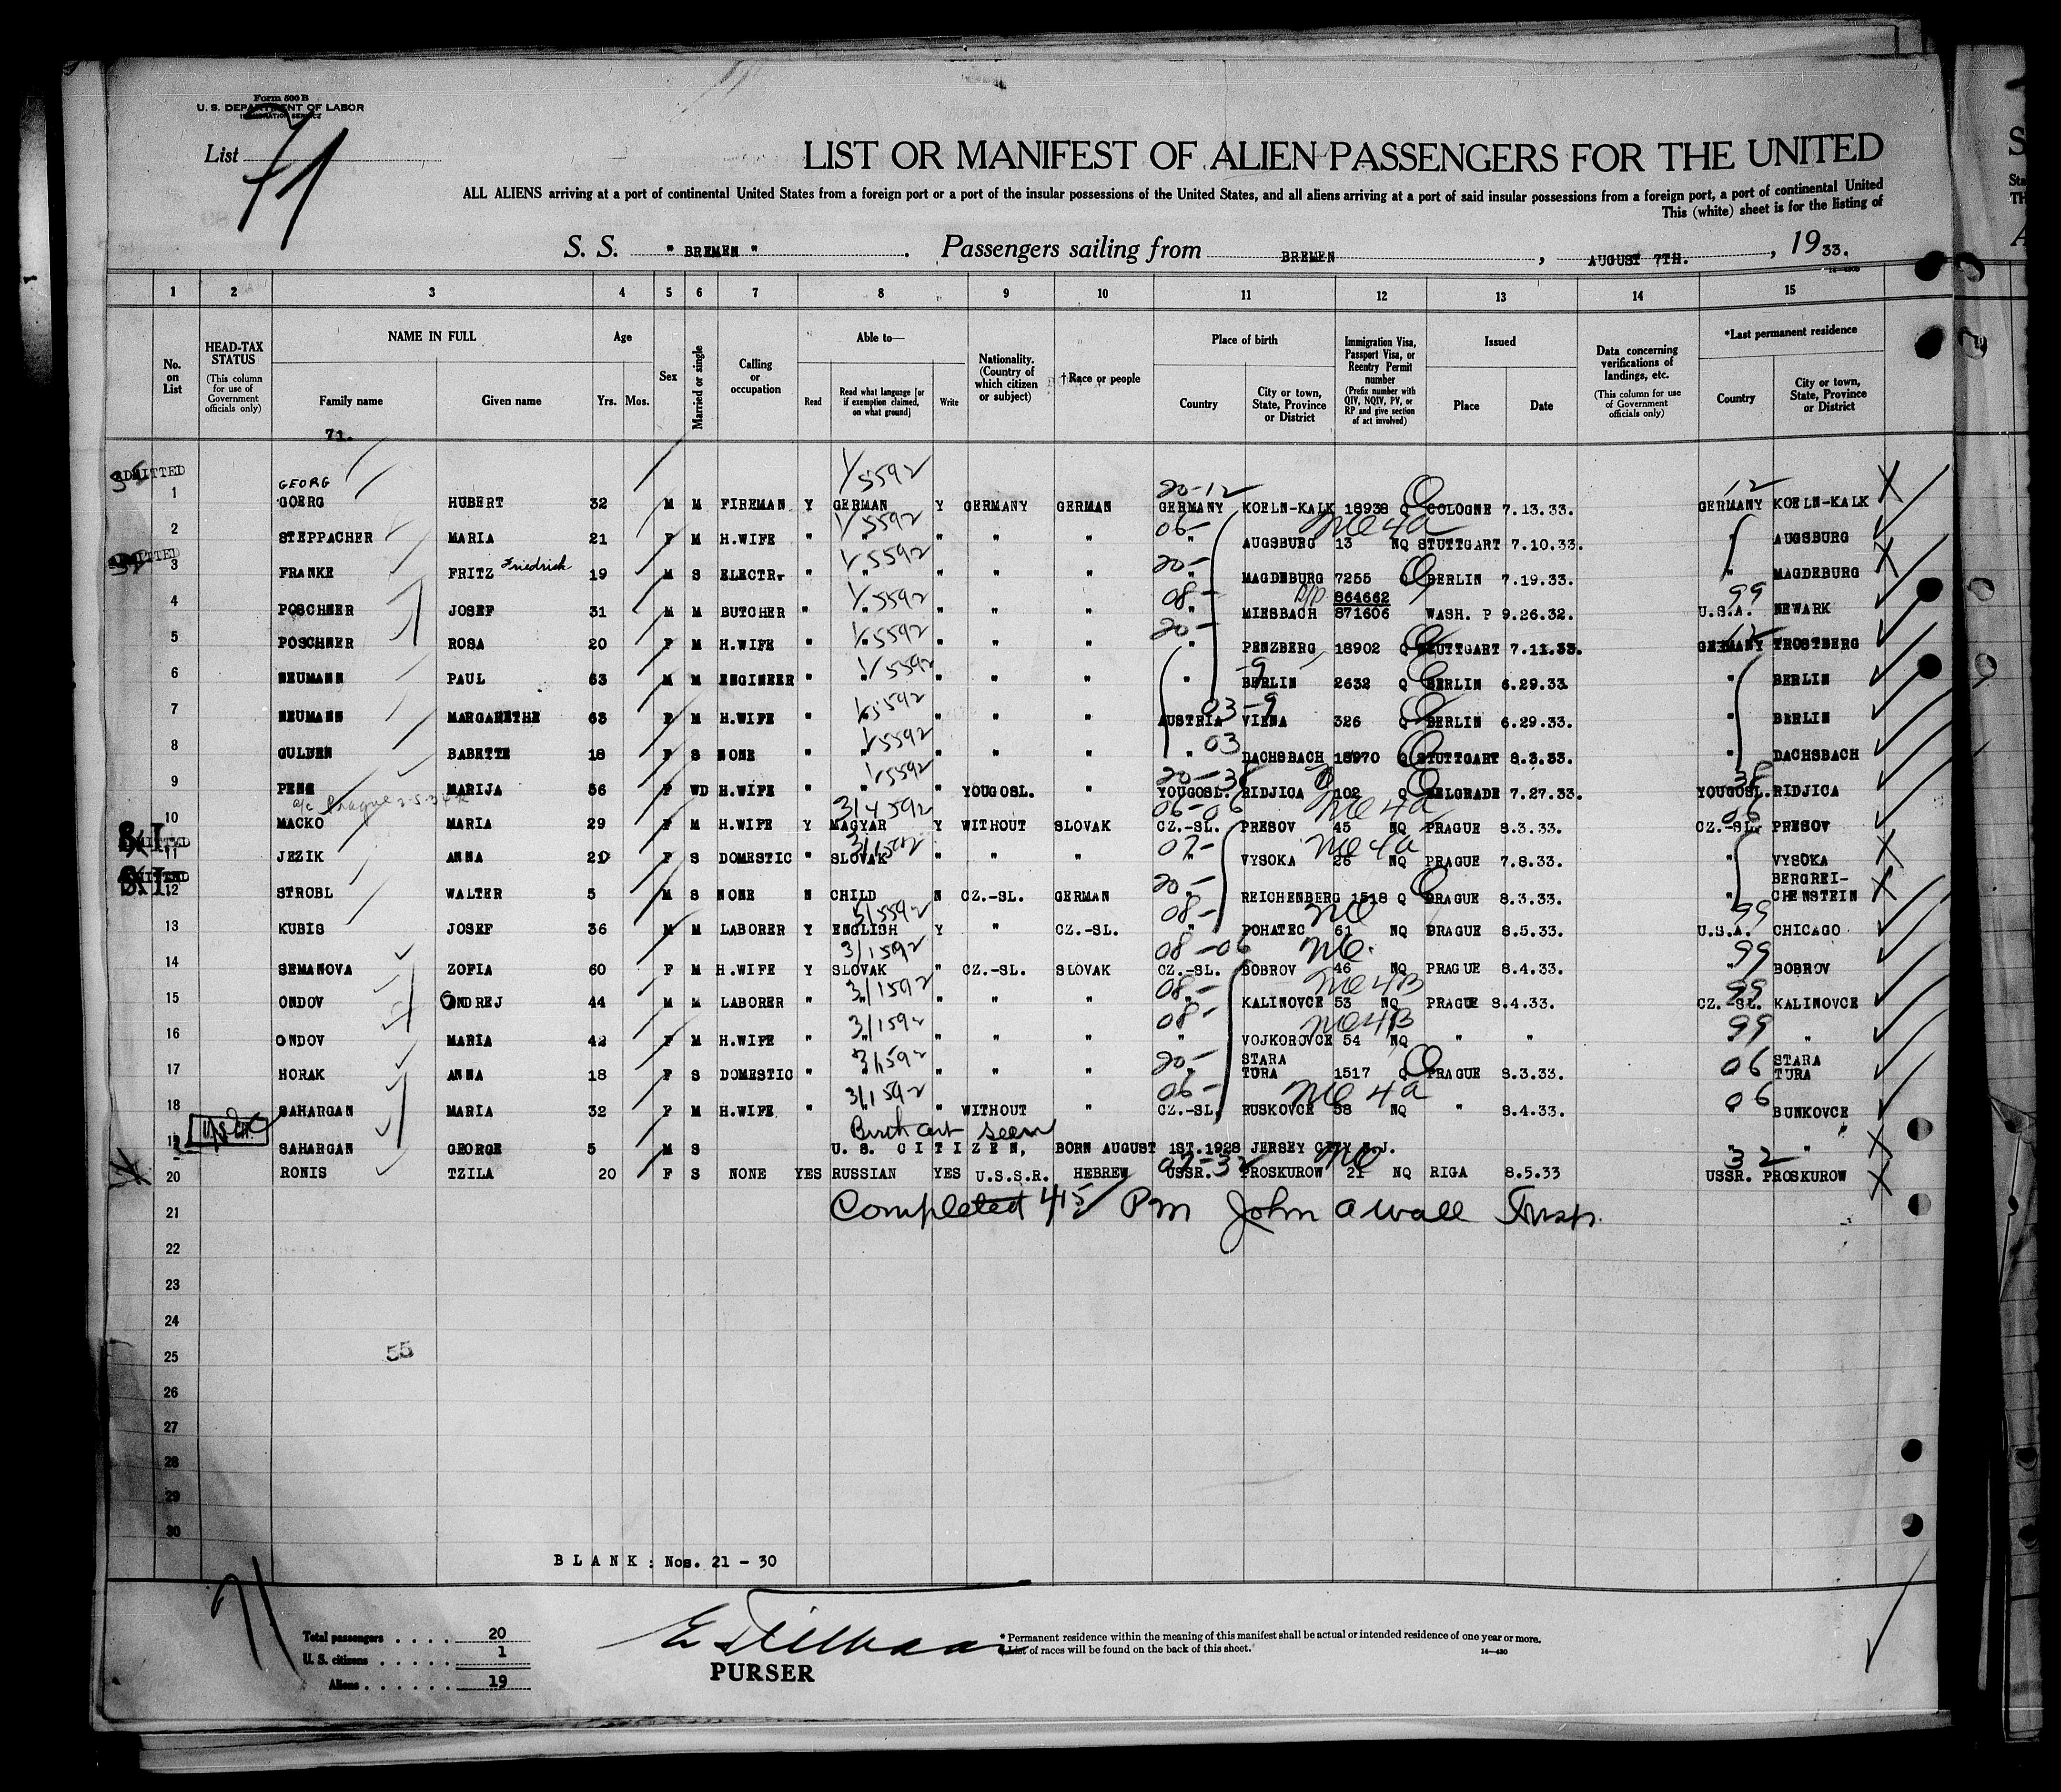 Form 500 B
U. S. DEPARTMENT OF LABOR
IMMIGRATION SERVICE
List 71
LIST OR MANIFEST OF ALIEN PASSENGERS FOR THE UNITED
ALL ALIENS arriving at a port of continental United States from a foreign port or a port of the insular possessions of the United States, and all aliens arriving at a port of said insular possessions from a foreign port, a port of continental United
This (white) sheet is for the listing of
S. S. "BREMEN". Passengers sailing from BREMEN, AUGUST 7TH., 1933.
1 2 3 4 5 6 7 8 9 10 11 12 13 14 15
No. on List
HEAD-TAX STATUS (This column for use of Government officials only)
NAME IN FULL Family name Given name
Age Yrs. Mos.
Sex
Married or single
Calling or occupation
Able to— Read Read what language [or if exemption claimed, on what ground] Write
Nationality. (Country of which citizen or subject)
†Race or people
Place of birth Country City or town, State, Province or District
Immigration Visa, Passport Visa, or Reentry Permit number (Prefix number with QIV, NQIV, PV, or RP and give section of act involved)
Issued Place Date
Data concerning verifications of landings, etc. (This column for use of Government officials only)
*Last permanent residence Country City or town, State, Province or District
71.
ADMITTED
GEORG 1/5592 20-12 12
1 GOERG HUBERT 32 M M FIREMAN Y GERMAN Y GERMANY GERMAN GERMANY KOELN-KALK 18938 Q COLOGNE 7.13.33. GERMANY KOELN-KALK
1/5592 06-
2 STEPPACHER MARIA 21 F M H.WIFE " " " " " " AUGSBURG 13 NQ STUTTGART 7.10.33. " AUGSBURG
ADMITTED
1/5592 20-
3 FRANKE FRITZ Friedrich 19 M S ELECTR. " " " " " " MAGDEBURG 7255 Q BERLIN 7.19.33. " MAGDEBURG
1/5592 08- R/P 864662 99
4 POSCHNER JOSEF 31 M M BUTCHER " " " " " " MIESBACH 871606 WASH. P 9.26.32. U.S.A. NEWARK
1/5592 20- 12
5 POSCHNER ROSA 20 F M H.WIFE " " " " " " PENZBERG 18902 Q STUTTGART 7.11.33. GERMANY TROSTBERG
1/5592 -9
6 NEUMANN PAUL 63 M M ENGINEER " " " " " " BERLIN 2632 Q BERLIN 6.29.33. " BERLIN
1/5592 03-9
7 NEUMANN MARGARETHE 63 F M H.WIFE " " " " " AUSTRIA VIENA 326 Q BERLIN 6.29.33. " BERLIN
1/5592 03
8 GULDEN BABETTE 18 F S NONE " " " " " " DACHSBACH 18970 Q STUTTGART 8.3.33. " DACHSBACH
1/5592 20-38 38
9 PENG MARIJA 56 F WD H.WIFE " " " YOUGOSL. " YOUGOSL. RIDJICA 102 Q BELGRADE 7.27.33. YOUGOSL. RIDJICA
3/4592 06-06 06
10 MACKO MARIA 29 F M H.WIFE Y MAGYAR Y WITHOUT SLOVAK CZ.-SL. PRESOV 45 NQ PRAGUE 8.3.33. CZ.-SL. PRESOV
S.I.
3/1592 07-
11 JEZIK ANNA 20 F S DOMESTIC " SLOVAK " " " " VYSOKA 26 NQ PRAGUE 7.8.33. " VYSOKA
S.I.
20-
12 STROBL WALTER 5 M S NONE N CHILD N CZ.-SL. GERMAN " REICHENBERG 1518 Q PRAGUE 8.3.33. " BERGREI-
CHENSTEIN
08- 99
13 KUBIS JOSEF 36 M M LABORER Y ENGLISH Y " CZ.-SL. " POHATEC 61 NQ PRAGUE 8.5.33. U.S.A. CHICAGO
3/1592 08-06 99
14 SEMANOVA ZOFIA 60 F M H.WIFE Y SLOVAK " CZ.-SL. SLOVAK CZ.-SL. BOBROV 46 NQ PRAGUE 8.4.33. " BOBROV
3/1592 08- 99
15 ONDOV ONDREJ 44 M M LABORER " " " " " " KALINOVCE 53 NQ PRAGUE 8.4.33. CZ.-SL. KALINOVCE
3/1592 08- 99
16 ONDOV MARIA 42 F M H.WIFE " " " " " " VOJKOROVCE 54 NQ " " "
3/1592 20- 06
17 HORAK ANNA 18 F S DOMESTIC " " " " " " STARA TURA 1517 Q PRAGUE 8.3.33. STARA TURA
3/1592 06- 06
18 SAHARGAN MARIA 32 F M H.WIFE " " " WITHOUT " CZ.-SL. RUSKOVCE 58 NQ " 8.4.33. " BUNKOVCE
Birth cert seen
19 SAHARGAN GEORGE 5 M S U. S. C I T I Z E N, BORN AUGUST 1ST.1928 JERSEY CITY N.J. " "
07-32 32
20 RONIS TZILA 20 F S NONE YES RUSSIAN YES U.S.S.R. HEBREW USSR. PROSKUROW 21 NQ RIGA 8.5.33 USSR. PROSKUROW
21 Completed 415 Pm John A Wall Insp.
22
23
24
25 55
26
27
28
29
30
B L A N K : Nos. 21 - 30
71
Total passengers . . . . 20
U. S. citizens . . . . . 1
Aliens . . . . . . 19
PURSER
* Permanent residence within the meaning of this manifest shall be actual or intended residence of one year or more.
† List of races will be found on the back of this sheet.
14—430